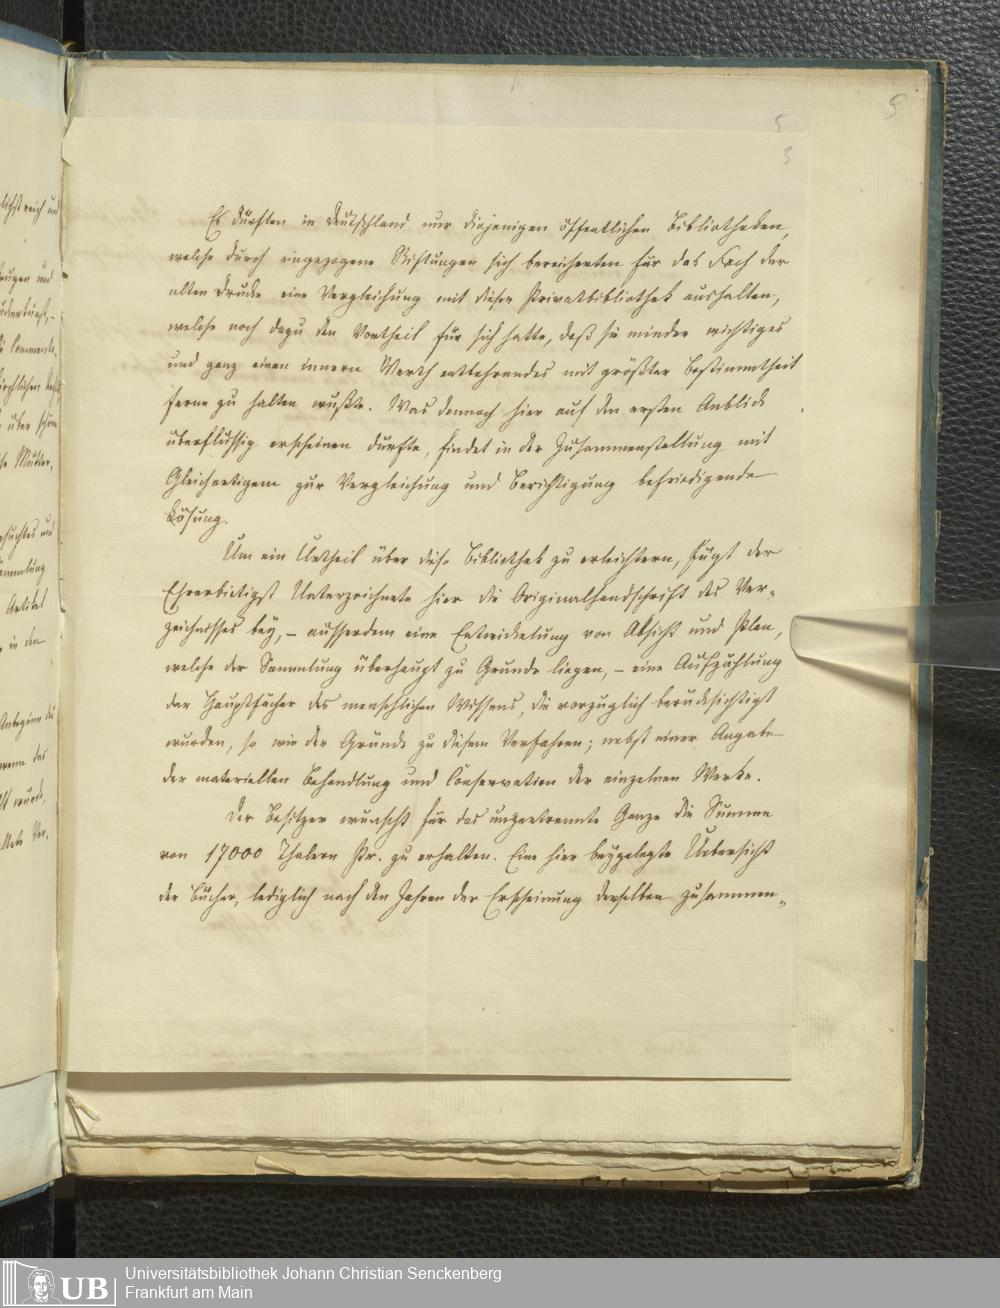 5
5
3
Es dürften in Deutschland nur diejenigen öffentlichen Bibliotheken,
welche durch eingezogene Stiftungen sich bereicherten für das Fach der
alten Drucke eine Vergleichung mit dieser Privatbibliothek aushalten,
welche noch dazu den Vortheil für sich hatte, daß sie minder wichtiges
und ganz einen innern Werth entbehrendes mit größter Bestimmtheit
ferne zu halten wußte. Was dennoch hier auf den ersten Anblick
überflüssig erscheinen dürfte, findet in der Zusammenstellung mit
Gleichartigem zur Vergleichung und Berichtigung befriedigende
Lösung.
Um ein Urtheil über diese Bibliothek zu erleichtern, fügt der
Ehrerbietigst Unterzeichnete hier die Originalhandschrift des Ver-
zeichnisses bey, – ausserdem eine Entwickelung von Absicht und Plan,
welche der Sammlung überhaupt zu Grunde liegen, – eine Aufzählung
der Hauptfächer des menschlichen Wissens, die vorzüglich berücksichtigt
wurden, so wie der Gründe zu diesem Verfahren; nebst einer Angabe
der materiellen Behandlung und Conservation der einzelnen Werke.
Der Besitzer wünscht für das ungetrennte Ganze die Summe
von 17000 Thalern Pr. zu erhalten. Eine hier beygelegte Uebersicht
der Bücher, lediglich nach den Jahren der Erscheinung derselben zusammen-
UB
Universitätsbibliothek Johann Christian Senckenberg
Frankfurt am Main